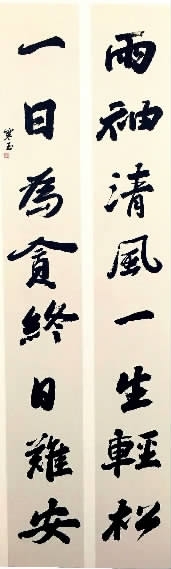 两袖清風一生輕松
一日為貪終日難安
寒玉